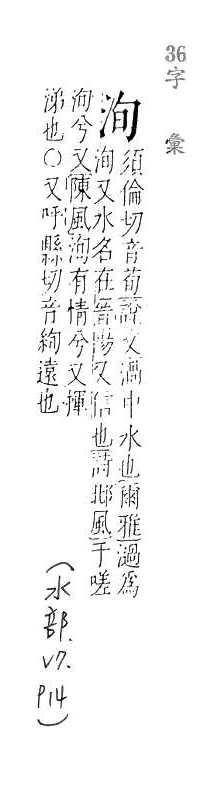 36字彙
洵
須倫切音荀說文濄中水也爾雅濄為
洵又水名在晉陽又信也詩邶風于嗟
洵兮又陳風洵有情兮又揮
涕也○又呼縣切音絢遠也
(水部. V7. P14)